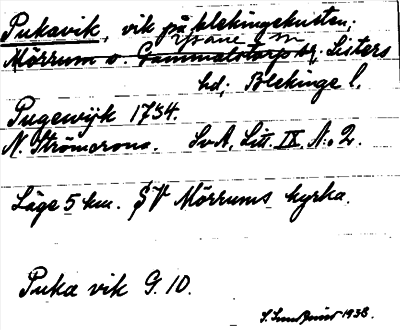 Pukavik, vik på Blekingekusten;
Ysane sn
Mörrum o. Gammalstorps sn, Listers
hd; Blekinge l.
Pugewijk 1754.
N. Strömcrona. SvA, Litt. IX, N:o 2.
Läge 5 km. SV Mörrums kyrka.
Puka vik G. 10.
1938